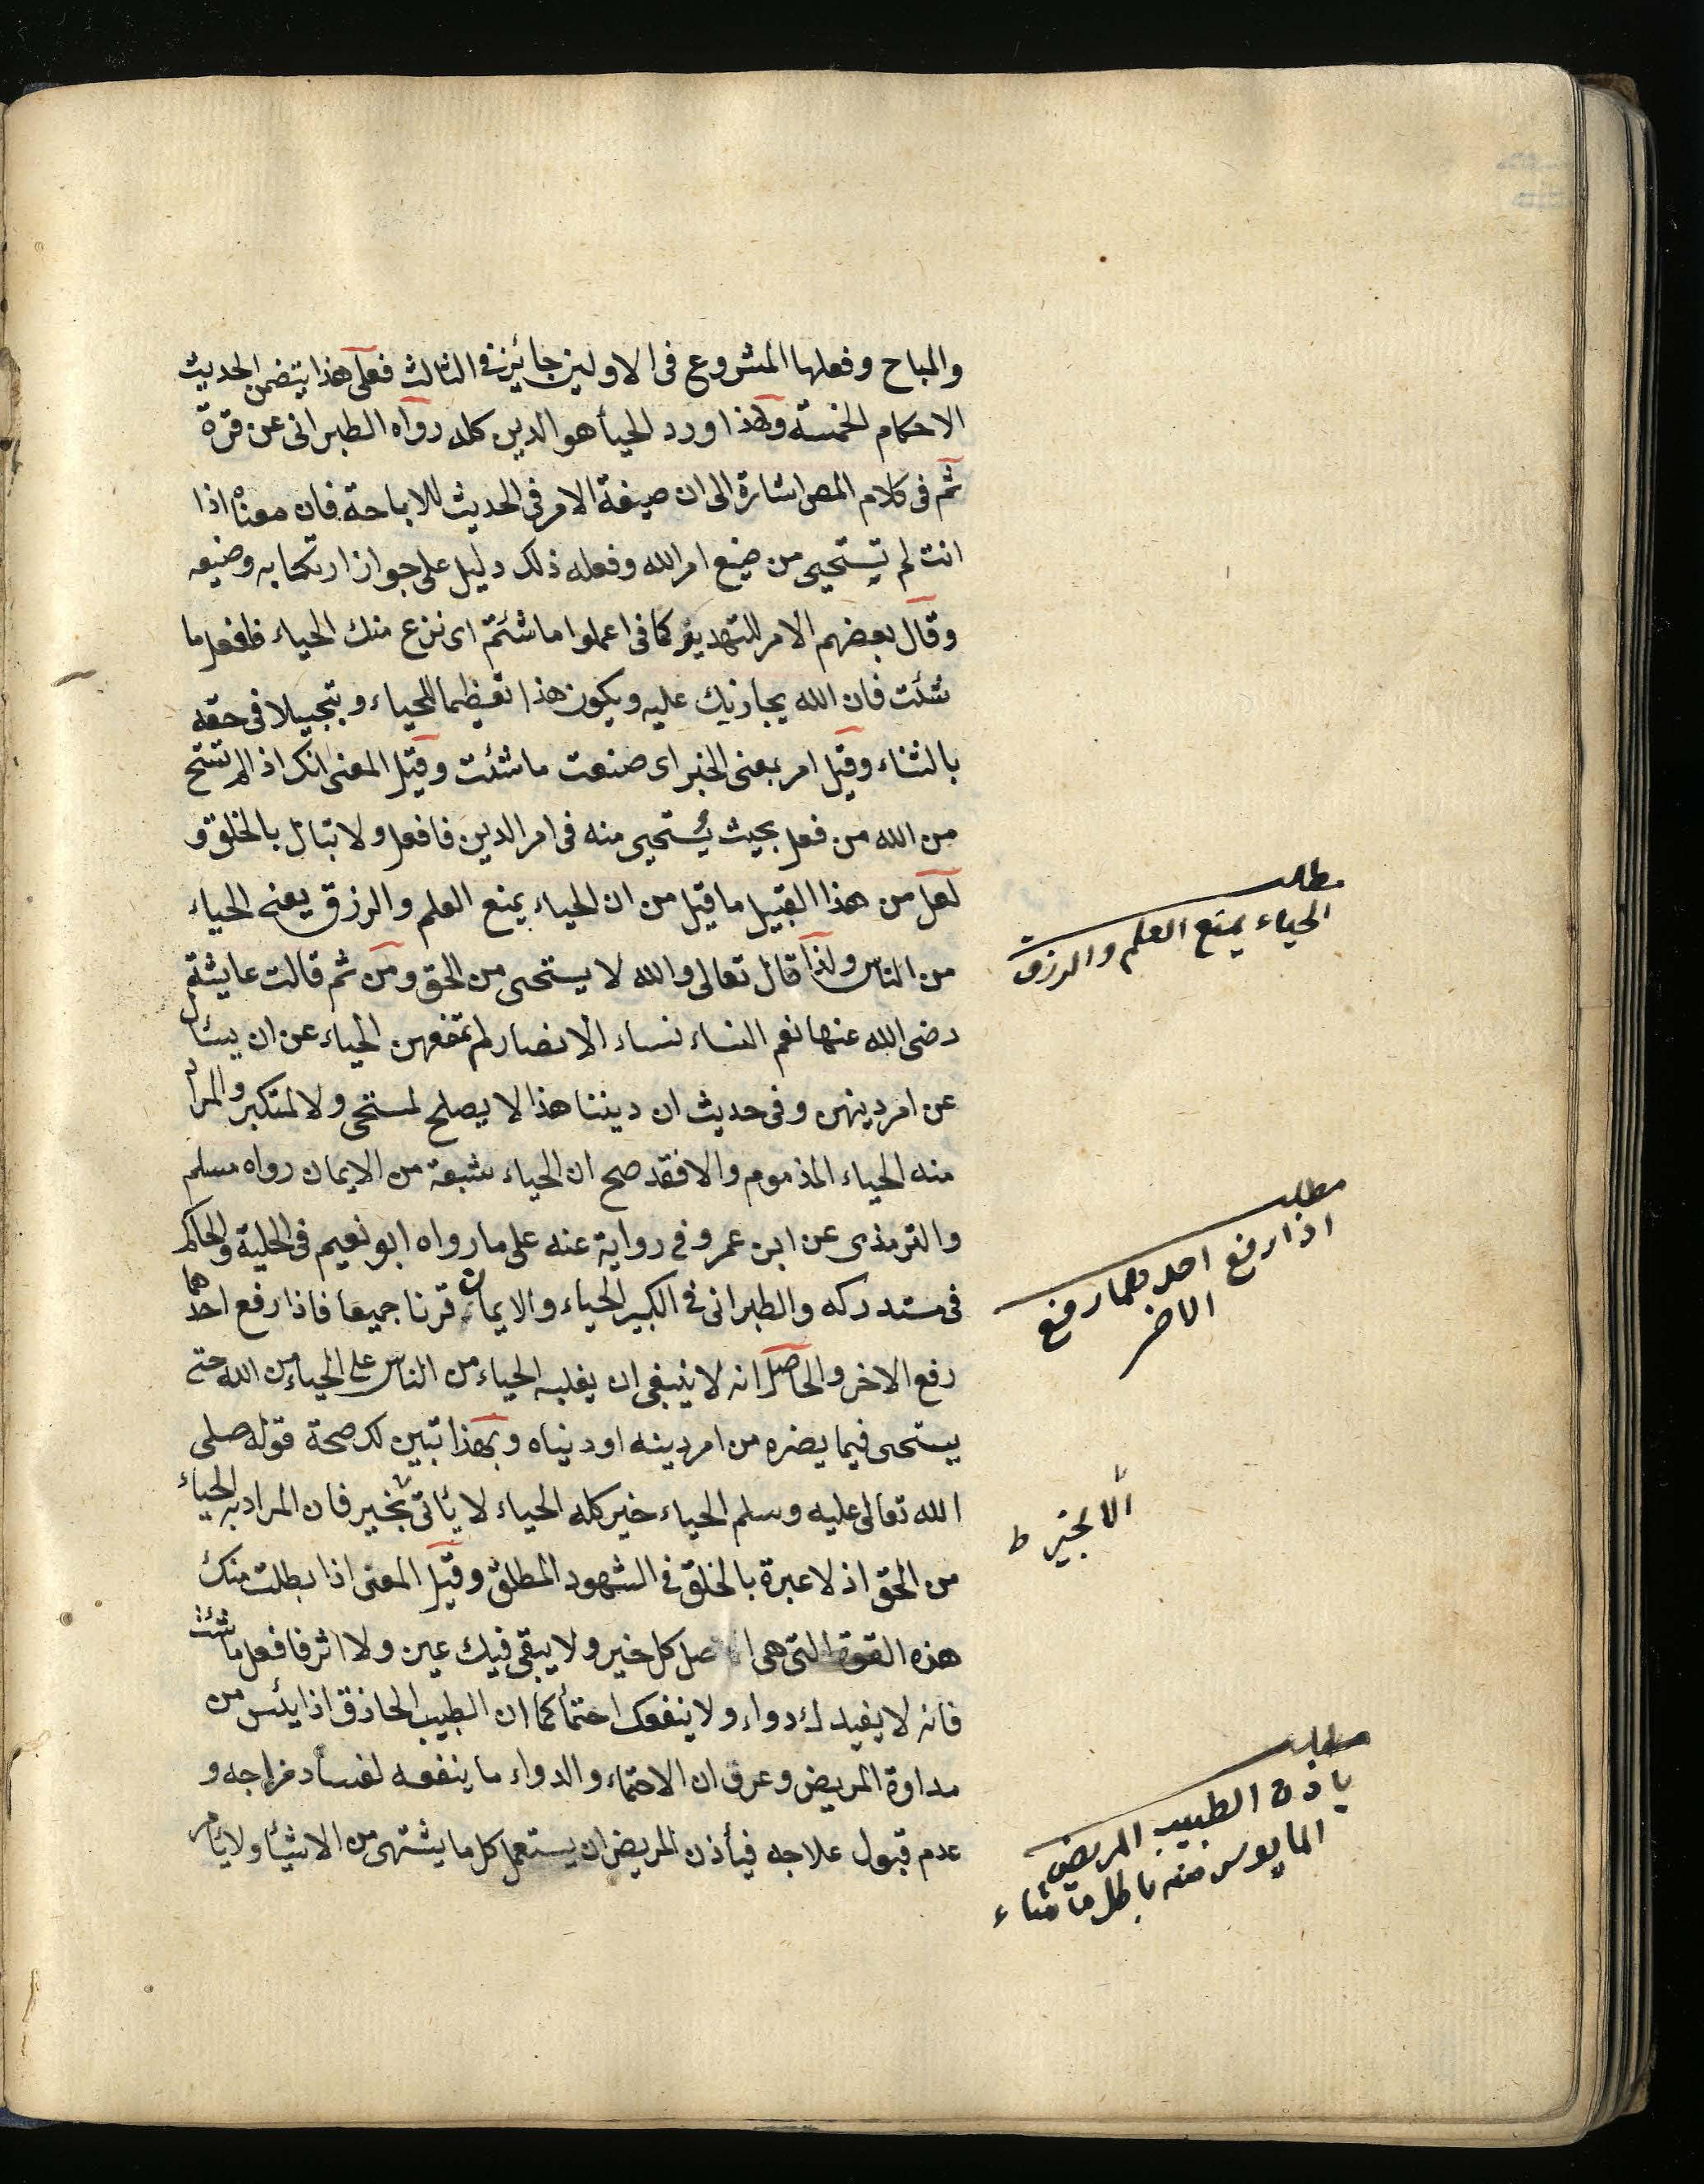 والمباح وفعلها المشروع فى الاولين جائز فى الثالث فعلى هذا يتضمن الحديث
الاحكام الخمسة ولهذا ورد الحيأ هو الدين كله رواه الطبرانى عن قرة
ثم فى كلام المص اشارة الى ان صيغة الامر فى الحديث للاباحة فان معناه اذا
انت لم تستحيى من صنع امر الله وفعله ذلك دليل على جواز ارتكابه وصنيعه
وقال بعضهم الامر للتهديد كما فى اعملوا ما شئتم اى نزع منك الحياء فافعل ما
شئت فان الله يجازيك عليه ويكون هذا تعظيما للحياء وتبجيلا فى حقه
بالثناء وقيل امر بمعنى الخبر اى صنعت ما شئت وقيل المعنى انك اذا لم تستح
من الله من فعل بحيث يستحيى منه فى امر الدين فافعل ولا تبال بالخلق و
لعل من هذا القبيل ما قيل من ان الحياء يمنع العلم والرزق يعنى الحياء
من الناس ولذا قال تعالى والله لا يستحى من الحق ومن ثم قالت عايشة
رضى الله عنها نعم النساء نساء الانصار لم تمنعهن الحياء عن ان يسئل
عن امر دينهن وفى حديث ان ديننا هذا لا يصلح لمستحى ولا لمتكبر والمراد
منه الحياء المذموم والا فقد صح ان الحياء شعبة من الايمان رواه مسلم
والترمذى عن ابن عمر وفى رواية عنه على ما رواه ابو نعيم فى الحلية والحاكم
فى مستدركه والطبرانى فى الكبير الحياء والايمان قرنا جميعا فاذا رفع احدهما
رفع الاخر والحاصل انه لا ينبغى ان يغلبه الحياء من الناس على الحياء من الله حتى
يستحى فيما يضره من امر دينه او دنياه وبهذا تبين لك صحة قوله صلى
الله تعالى عليه وسلم الحياء خير كله الحياء لا يأتى بخير فان المراد به الحياء
من الحق اذ لا عبرة بالخلق فى الشهود المطلق وقيل المعنى اذا بطلت منك
هذه القوة التى هى اصل كل خير ولا يبقى فيك عين ولا اثر فافعل ما شئت
فانه لا يفيد لك دواء ولا ينفعك احتمأ كما ان الطبيب الحاذق اذا يئس من
مداوة المريض وعرف ان الاحتماء والدواء ما ينفعه لفساد مزاجه و
عدم قبول علاجه فيأذن المريض ان يستعمل كل ما يشتهى من الاشيأ ولا يأمر
مطلب
الحياء يمنع العلم والرزق
مطلب
اذا رفع احدهما رفع
الاخر
الا بخير ط
مطلب
يأذن الطبيب المريض
المايوس منه باكل ما شاء